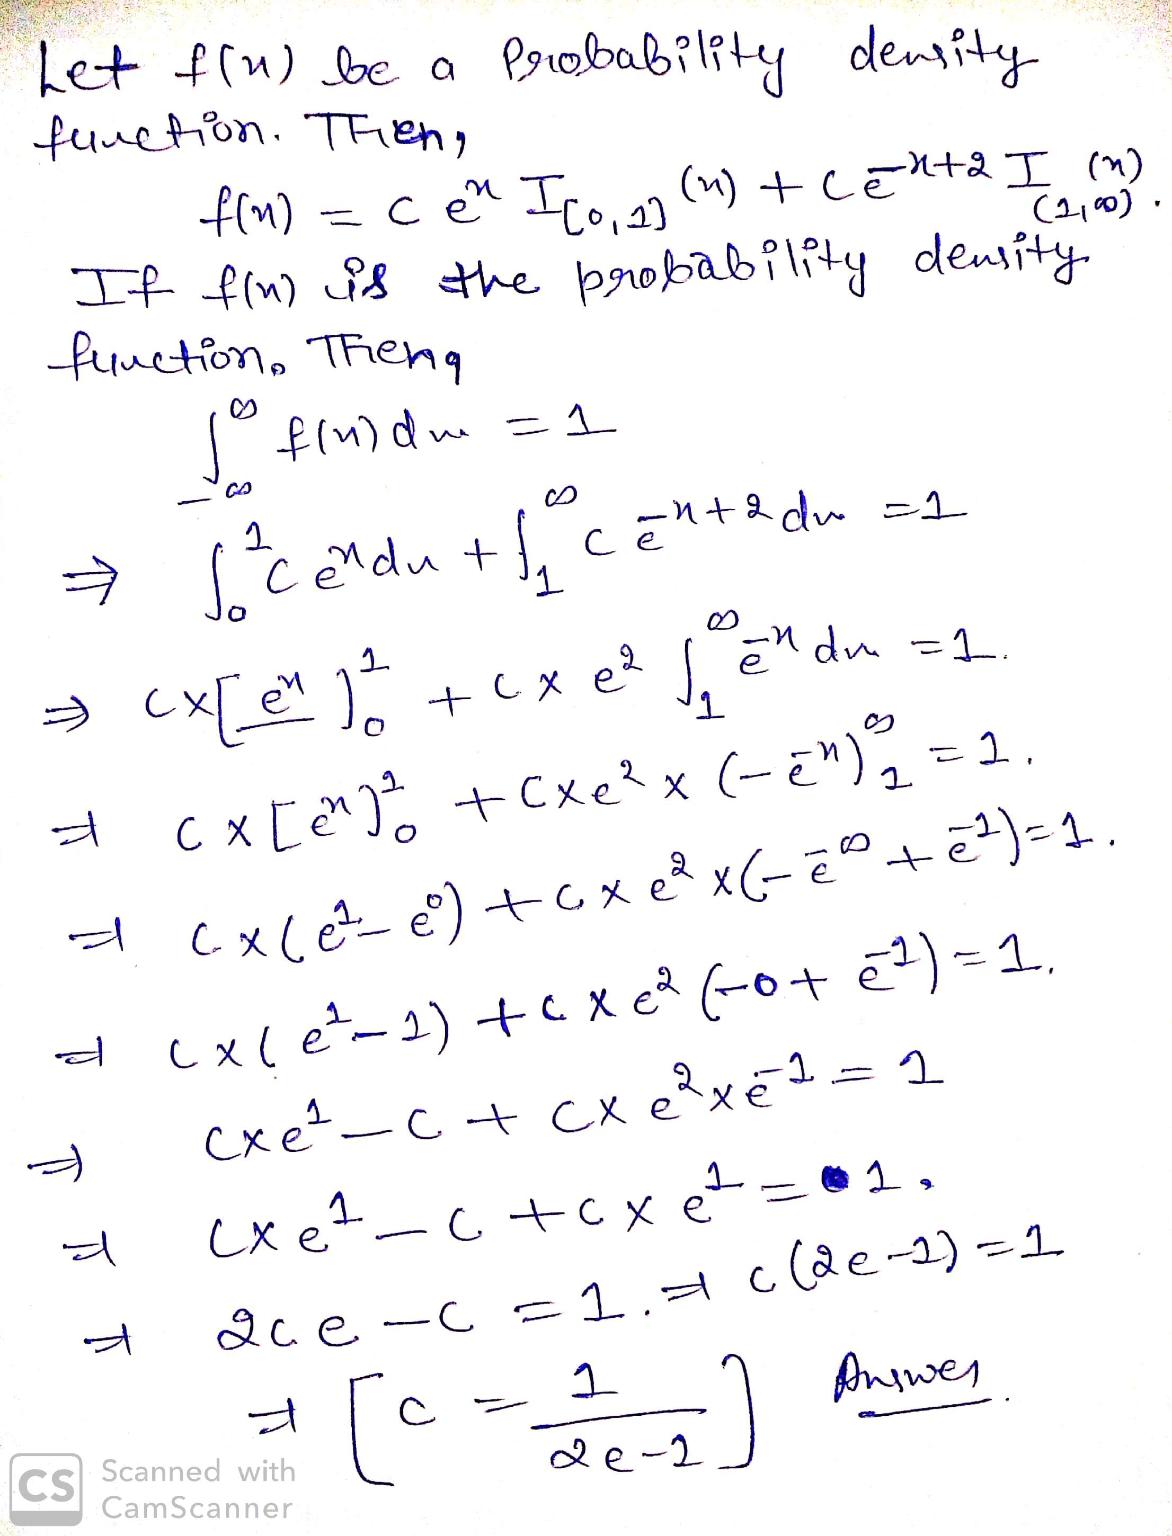 Let f(x) be a Probability density
function. Then,
f(x) = c e^x I_[0,1] (x) + c e^-x+2 I_(1,∞) (x).
If f(x) is the probability density
function. Then,
∫_-∞^∞ f(x) dx = 1
⇒ ∫_0^1 c e^x dx + ∫_1^∞ c e^-x+2 dx = 1
⇒ c × [e^x]_0^1 + c × e^2 ∫_1^∞ e^-x dx = 1.
⇒ c × [e^x]_0^1 + c × e^2 × (-e^-x)_1^∞ = 1.
⇒ c × (e^1 - e^0) + c × e^2 × (-e^-∞ + e^-1) = 1.
⇒ c × (e^1 - 1) + c × e^2 (-0 + e^-1) = 1.
⇒ c × e^1 - c + c × e^2 × e^-1 = 1
⇒ c × e^1 - c + c × e^1 = 1.
⇒ 2ce - c = 1. ⇒ c(2e-1) = 1
⇒ [c = 1/(2e-1)] Answer.
CS Scanned with
CamScanner